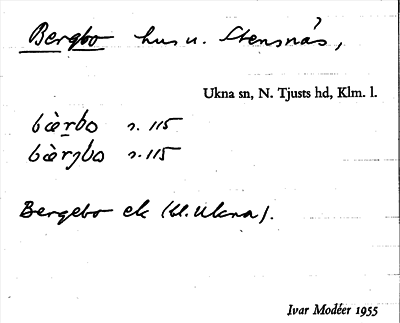 Bergbo hus u. Stensnäs,
Ukna sn, N. Tjusts hd, Klm. l.
bàrbo s. 115
bàrjbo s. 115
Bergebo ek (kl. Ukna).
Ivar Modéer 1955